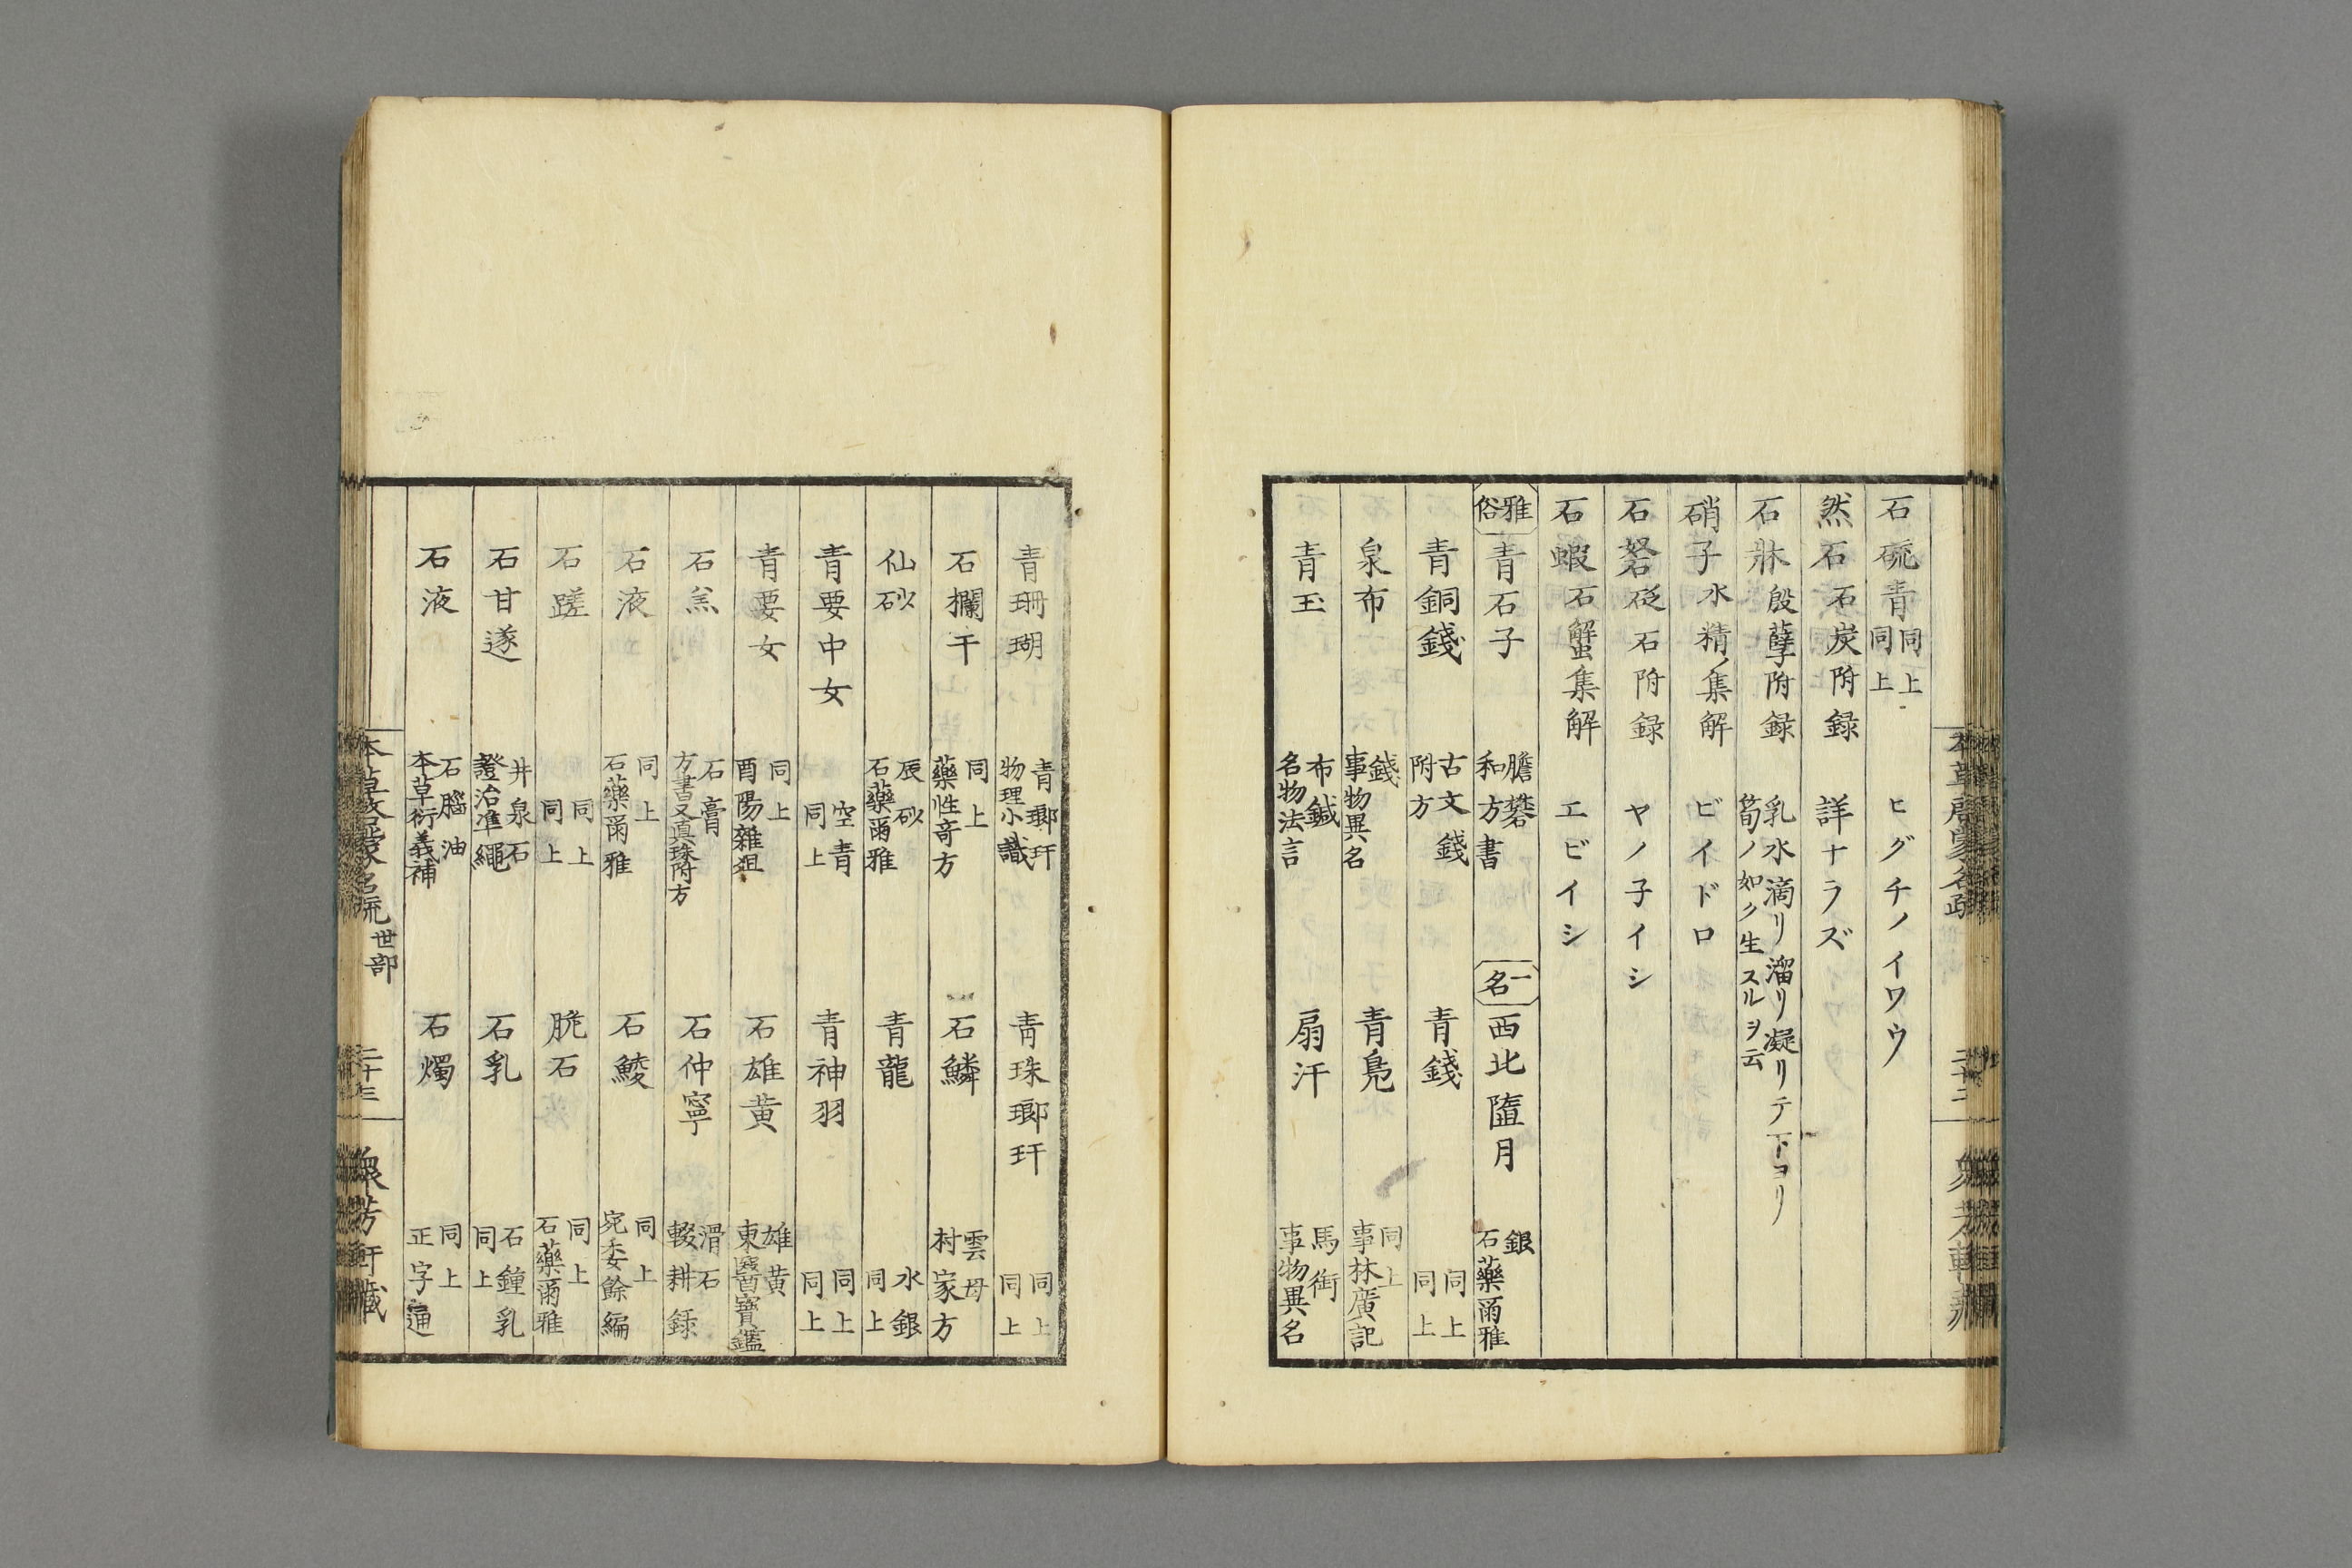 石硫青 同上 同上 ヒグチノイワウ
然石 石炭附録 詳ナラズ
石牀 殷孽附録 乳水滴リ溜リ凝リテ下ヨリ 筍ノ如ク生スルヲ云
硝子 水精ノ集解 ビイドロ
石砮 砭石附録 ヤノ子イシ
石蝦 石蟹集解 エビイシ
雅俗 青石子 膽礬 和方書 一名 西北隘月 銀 石藥爾雅
青銅錢 古文錢 附方 青錢 同上 同上
泉布 錢 事物異名 青鳧 同上 事林廣記
青玉 布鍼 名物法言 扇汗 馬銜 事物異名
青珊瑚 青瑯玕 物理小識 青珠瑯玕 同上 同上
石欄干 同上 藥性奇方 石鱗 雲母 村家方
仙砂 辰砂 石藥爾雅 青龍 水銀 同上
青要中女 空青 同上 青神羽 同上 同上
青要女 同上 酉陽雜俎 石雄黄 雄黄 東醫寶鑑
石羔 石膏 方書又真珠附方 石仲寧 滑石 輟耕録
石液 同上 石藥爾雅 石鯪 同上 宛委餘編
石蹉 同上 同上 脆石 同上 石藥爾雅
石甘遂 井泉石 證治準繩 石乳 石鐘乳 同上
石液 石腦油 本草衍義補 石燭 同上 正字通
本草啓蒙名疏 世部 二十三 衆芳軒藏